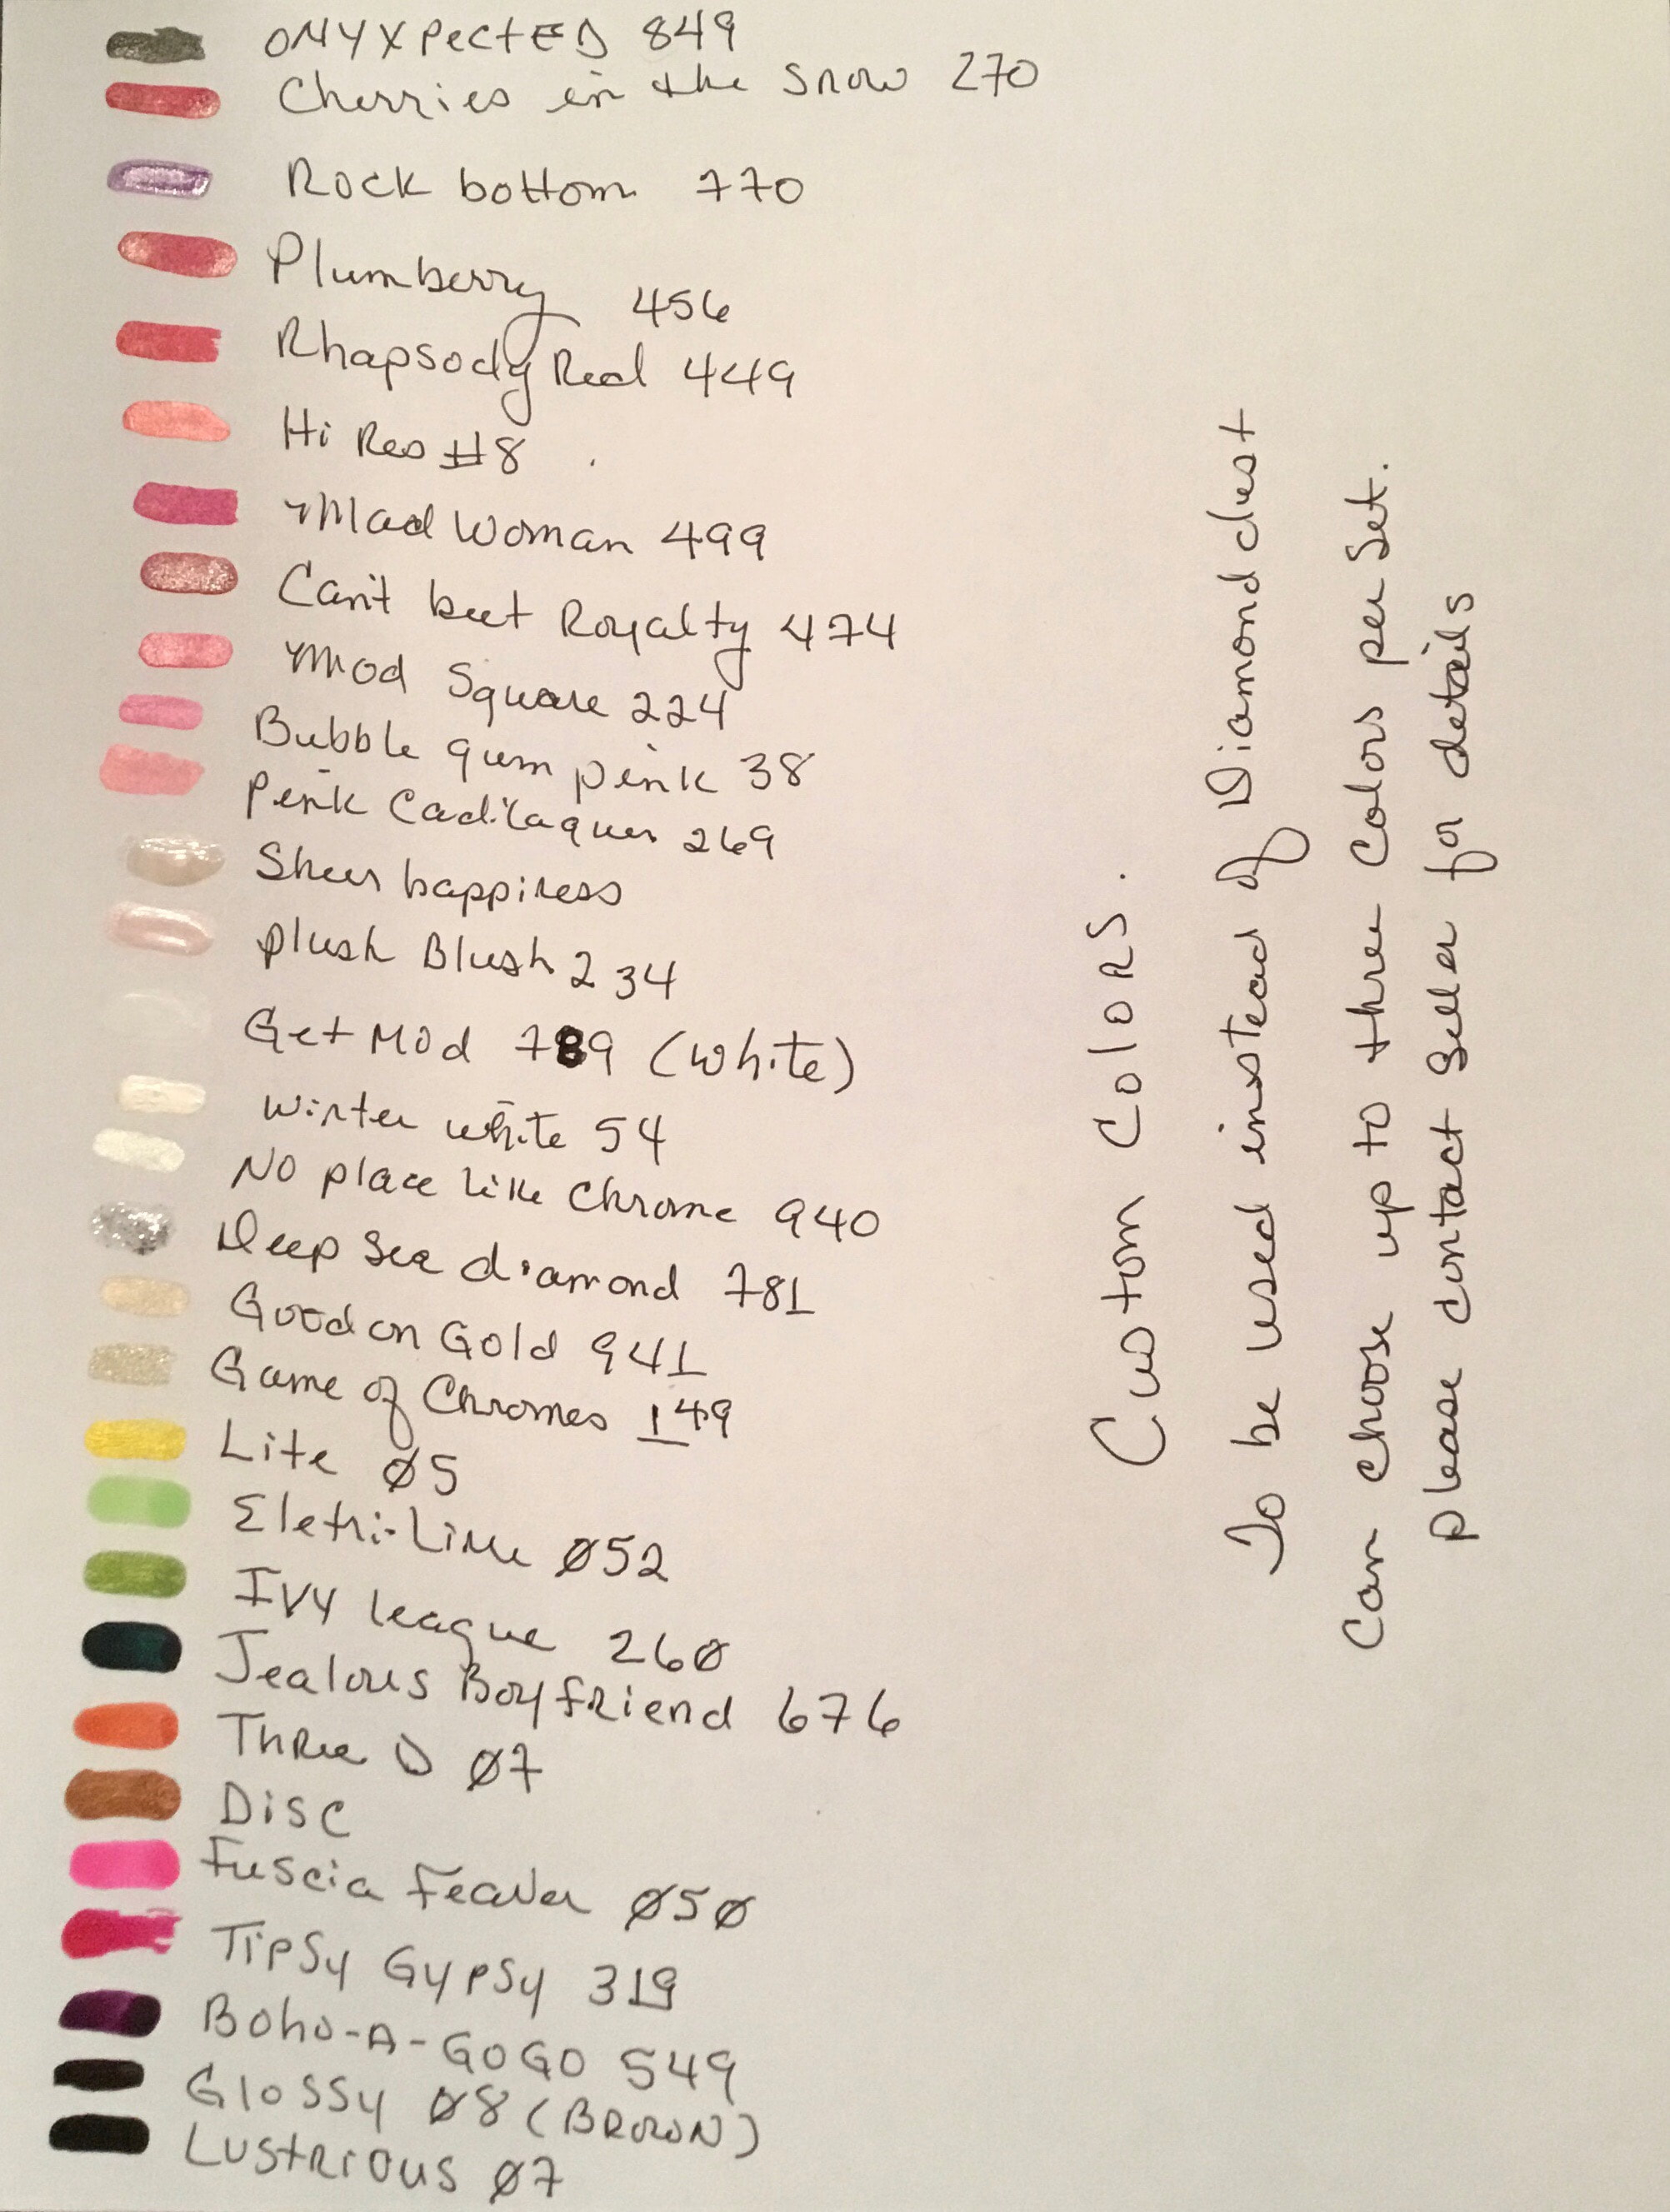 ONYXPECTED 849
Cherries in the snow 270
Rock bottom 770
Plumberry 456
Rhapsody Red 449
Hi Res #8
Mad Woman 499
Can't beet Royalty 474
Mod Square 224
Bubble gum pink 38
Pink Cadilaquer 269
Sheer happiness
plush Blush 234
Get MOd 789 (white)
Winter white 54
NO place like Chrome 940
Deep Sea diamond 781
Good on Gold 941
Game of Chromes 149
Lite Ø5
Eletri-Lime Ø52
IVY league 26Ø
Jealous Boyfriend 676
Three D Ø7
Disc
Fuscia Feaver Ø5Ø
Tipsy Gypsy 319
Boho-A-GOGO 549
Glossy Ø8 (BROWN)
Lustrious Ø7
Custom Colors.
To be used instead of Diamond dust
Can choose up to three Colors per Set.
please contact Seller for details